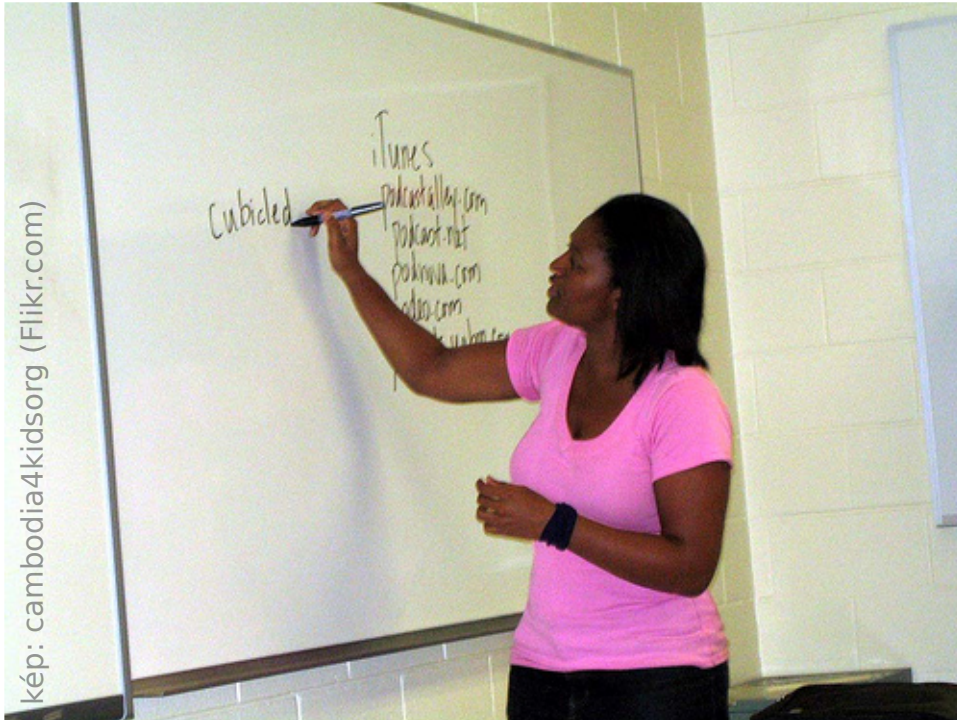 kép: cambodia4kidsorg (Flikr.com)
iTunes
Cubicled
podcastalley.com
podcast.net
podnova.com
odeo.com